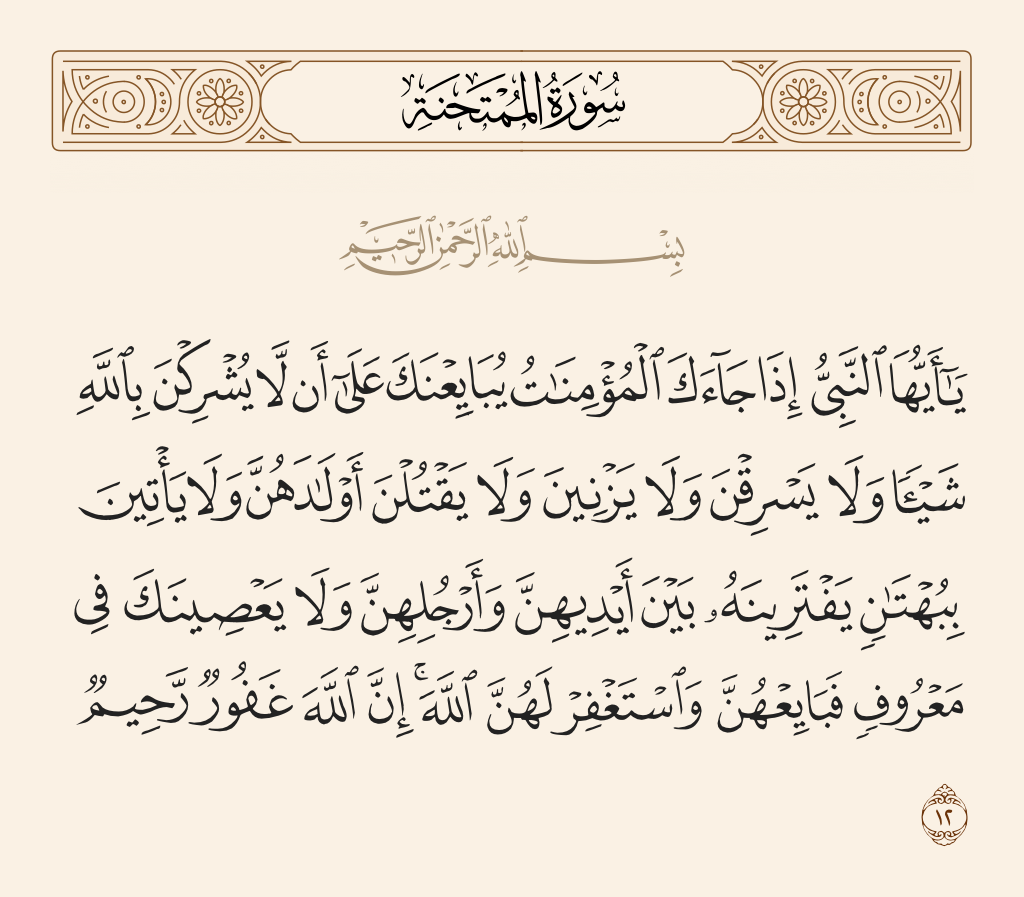 سُورَةُ الْمُمْتَحَنَةِ
بِسْمِ ٱللَّهِ ٱلرَّحْمَٰنِ ٱلرَّحِيمِ
يَٰٓأَيُّهَا ٱلنَّبِىُّ إِذَا جَآءَكَ ٱلْمُؤْمِنَٰتُ يُبَايِعْنَكَ عَلَىٰٓ أَن لَّا يُشْرِكْنَ بِٱللَّهِ
شَيْـًٔا وَلَا يَسْرِقْنَ وَلَا يَزْنِينَ وَلَا يَقْتُلْنَ أَوْلَٰدَهُنَّ وَلَا يَأْتِينَ
بِبُهْتَٰنٍ يَفْتَرِينَهُۥ بَيْنَ أَيْدِيهِنَّ وَأَرْجُلِهِنَّ وَلَا يَعْصِينَكَ فِى
مَعْرُوفٍ فَبَايِعْهُنَّ وَٱسْتَغْفِرْ لَهُنَّ ٱللَّهَ ۚ إِنَّ ٱللَّهَ غَفُورٌ رَّحِيمٌ
١٢